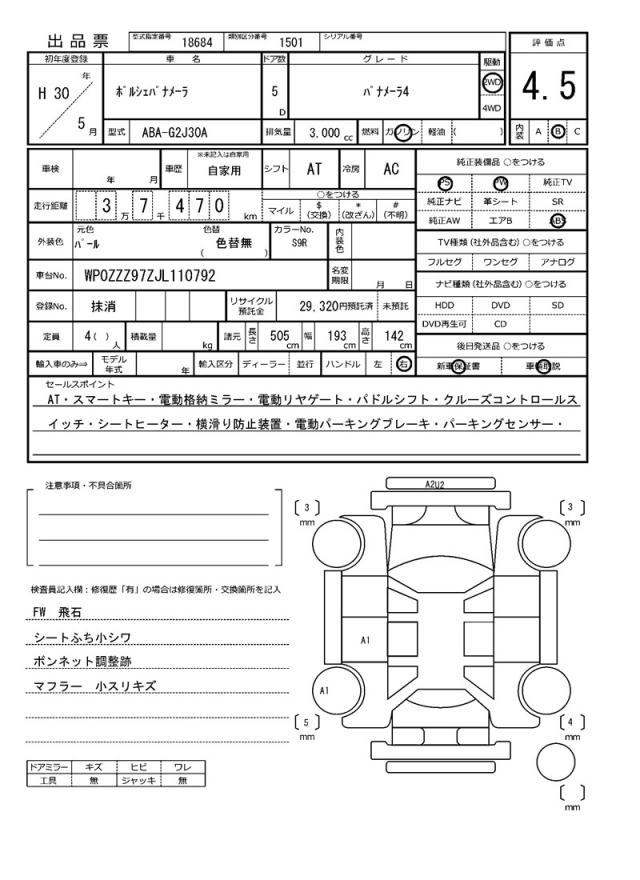 出品票 型式指定番号 18684 類別区分番号 1501 シリアル番号
評価点
4.5
初年度登録 車名 ドア数 グレード 駆動
H 30 年 5 月
ポルシェパナメーラ
5 D
パナメーラ4
2WD
4WD
型式 ABA-G2J30A 排気量 3,000 cc 燃料 ガソリン 軽油 ( )
内装 A B C
車検 年 月 車歴 ※未記入は自家用 自家用 シフト AT 冷房 AC
走行距離 3 7 万 千 4 7 0 km
○をつける
マイル $ (交換) * (改ざん) # (不明)
外装色 元色 パール 色替 ( 色替無 ) カラーNo. S9R 内装色
車台No. WP0ZZZ97ZJL110792 名変期限 月 日
登録No. 抹消 リサイクル預託金 29,320円預託済 未預託
定員 4( ) 人 積載量 kg 諸元 長さ 505 cm 幅 193 cm 高さ 142 cm
輸入車のみ⇒ モデル年式 年 輸入区分 ディーラー 並行 ハンドル 左 右
純正装備品 ○をつける
PS PW 純正TV
純正ナビ 革シート SR
純正AW エアB ABS
TV種類 (社外品含む) ○をつける
フルセグ ワンセグ アナログ
ナビ種類 (社外品含む) ○をつける
HDD DVD SD
DVD再生可 CD
後日発送品 ○をつける
新車保証書 車載取説
セールスポイント
AT・スマートキー・電動格納ミラー・電動リヤゲート・パドルシフト・クルーズコントロールス
イッチ・シートヒーター・横滑り防止装置・電動パーキングブレーキ・パーキングセンサー・
注意事項・不具合箇所
検査員記入欄：修復歴「有」の場合は修復箇所・交換箇所を記入
FW 飛石
シートふち小シワ
ボンネット調整跡
マフラー 小スリキズ
ドアミラー キズ ヒビ ワレ
工具 無 ジャッキ 無
A2U2
[ 3 ] mm
[ 3 ] mm
A1
A1
[ 5 ] mm
[ 4 ] mm
[ ] mm